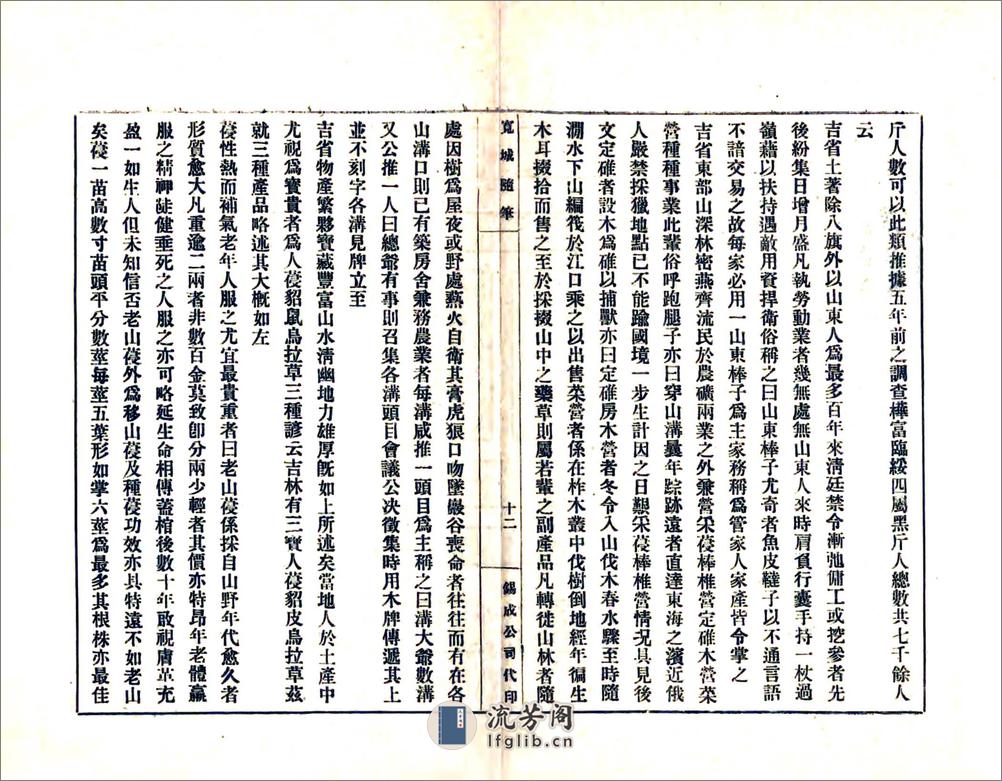 斤人數可以此類推據五年前之調查樺富臨綏四屬黑斤人總數共七千餘人
云
吉省土著除八旗外以山東人爲最多百年來淸廷禁令漸弛傭工或挖參者先
後紛集日增月盛凡執勞動業者幾無處無山東人來時肩負行囊手持一杖過
嶺藉以扶持遇敵用資捍衛俗稱之曰山東棒子尤奇者魚皮韃子以不通言語
不諳交易之故每家必用一山東棒子爲主家務稱爲管家人家產皆令掌之
吉省東部山深林密燕齊流民於農礦兩業之外兼營采葠棒椎營定碓木營菜
營種種事業此輩俗呼跑腿子亦曰穿山溝曩年踪跡遠者直達東海之濱近俄
人嚴禁採獵地點已不能踰國境一步生計因之日艱采葠棒椎營情况具見後
文定碓者設木爲碓以捕獸亦曰定碓房木營者冬令入山伐木春水驟至時隨
澗水下山編筏於江口乘之以出售菜營者係在柞木叢中伐樹倒地經年徧生
木耳掇拾而售之至於採掇山中之藥草則屬若輩之副產品凡轉徙山林者隨
寬城隨筆
十二
錫成公司代印
處因樹爲屋夜或野處爇火自衛其膏虎狼口吻墜巖谷喪命者往往而有在各
山溝口則已有築房舍兼務農業者每溝咸推一頭目爲主稱之曰溝大爺數溝
又公推一人曰總爺有事則召集各溝頭目會議公决徵集時用木牌傳遞其上
並不刻字各溝見牌立至
吉省物產繁夥寶藏豐富山水淸幽地力雄厚旣如上所述矣當地人於土產中
尤視爲寶貴者爲人葠貂鼠烏拉草三種諺云吉林有三寶人葠貂皮烏拉草茲
就三種產品略述其大概如左
葠性熱而補氣老年人服之尤宜最貴重者曰老山葠係採自山野年代愈久者
形質愈大凡重逾二兩者非數百金莫致卽分兩少輕者其價亦特昂年老體羸
服之精神陡健垂死之人服之亦可略延生命相傳蓋棺後數十年敢視膚革充
盈一如生人但未知信否老山葠外爲移山葠及種葠功效亦具特遠不如老山
矣葠一苗高數寸苗頭平分數莖每莖五葉形如掌六莖爲最多其根株亦最佳
流芳阁
lfglib.cn